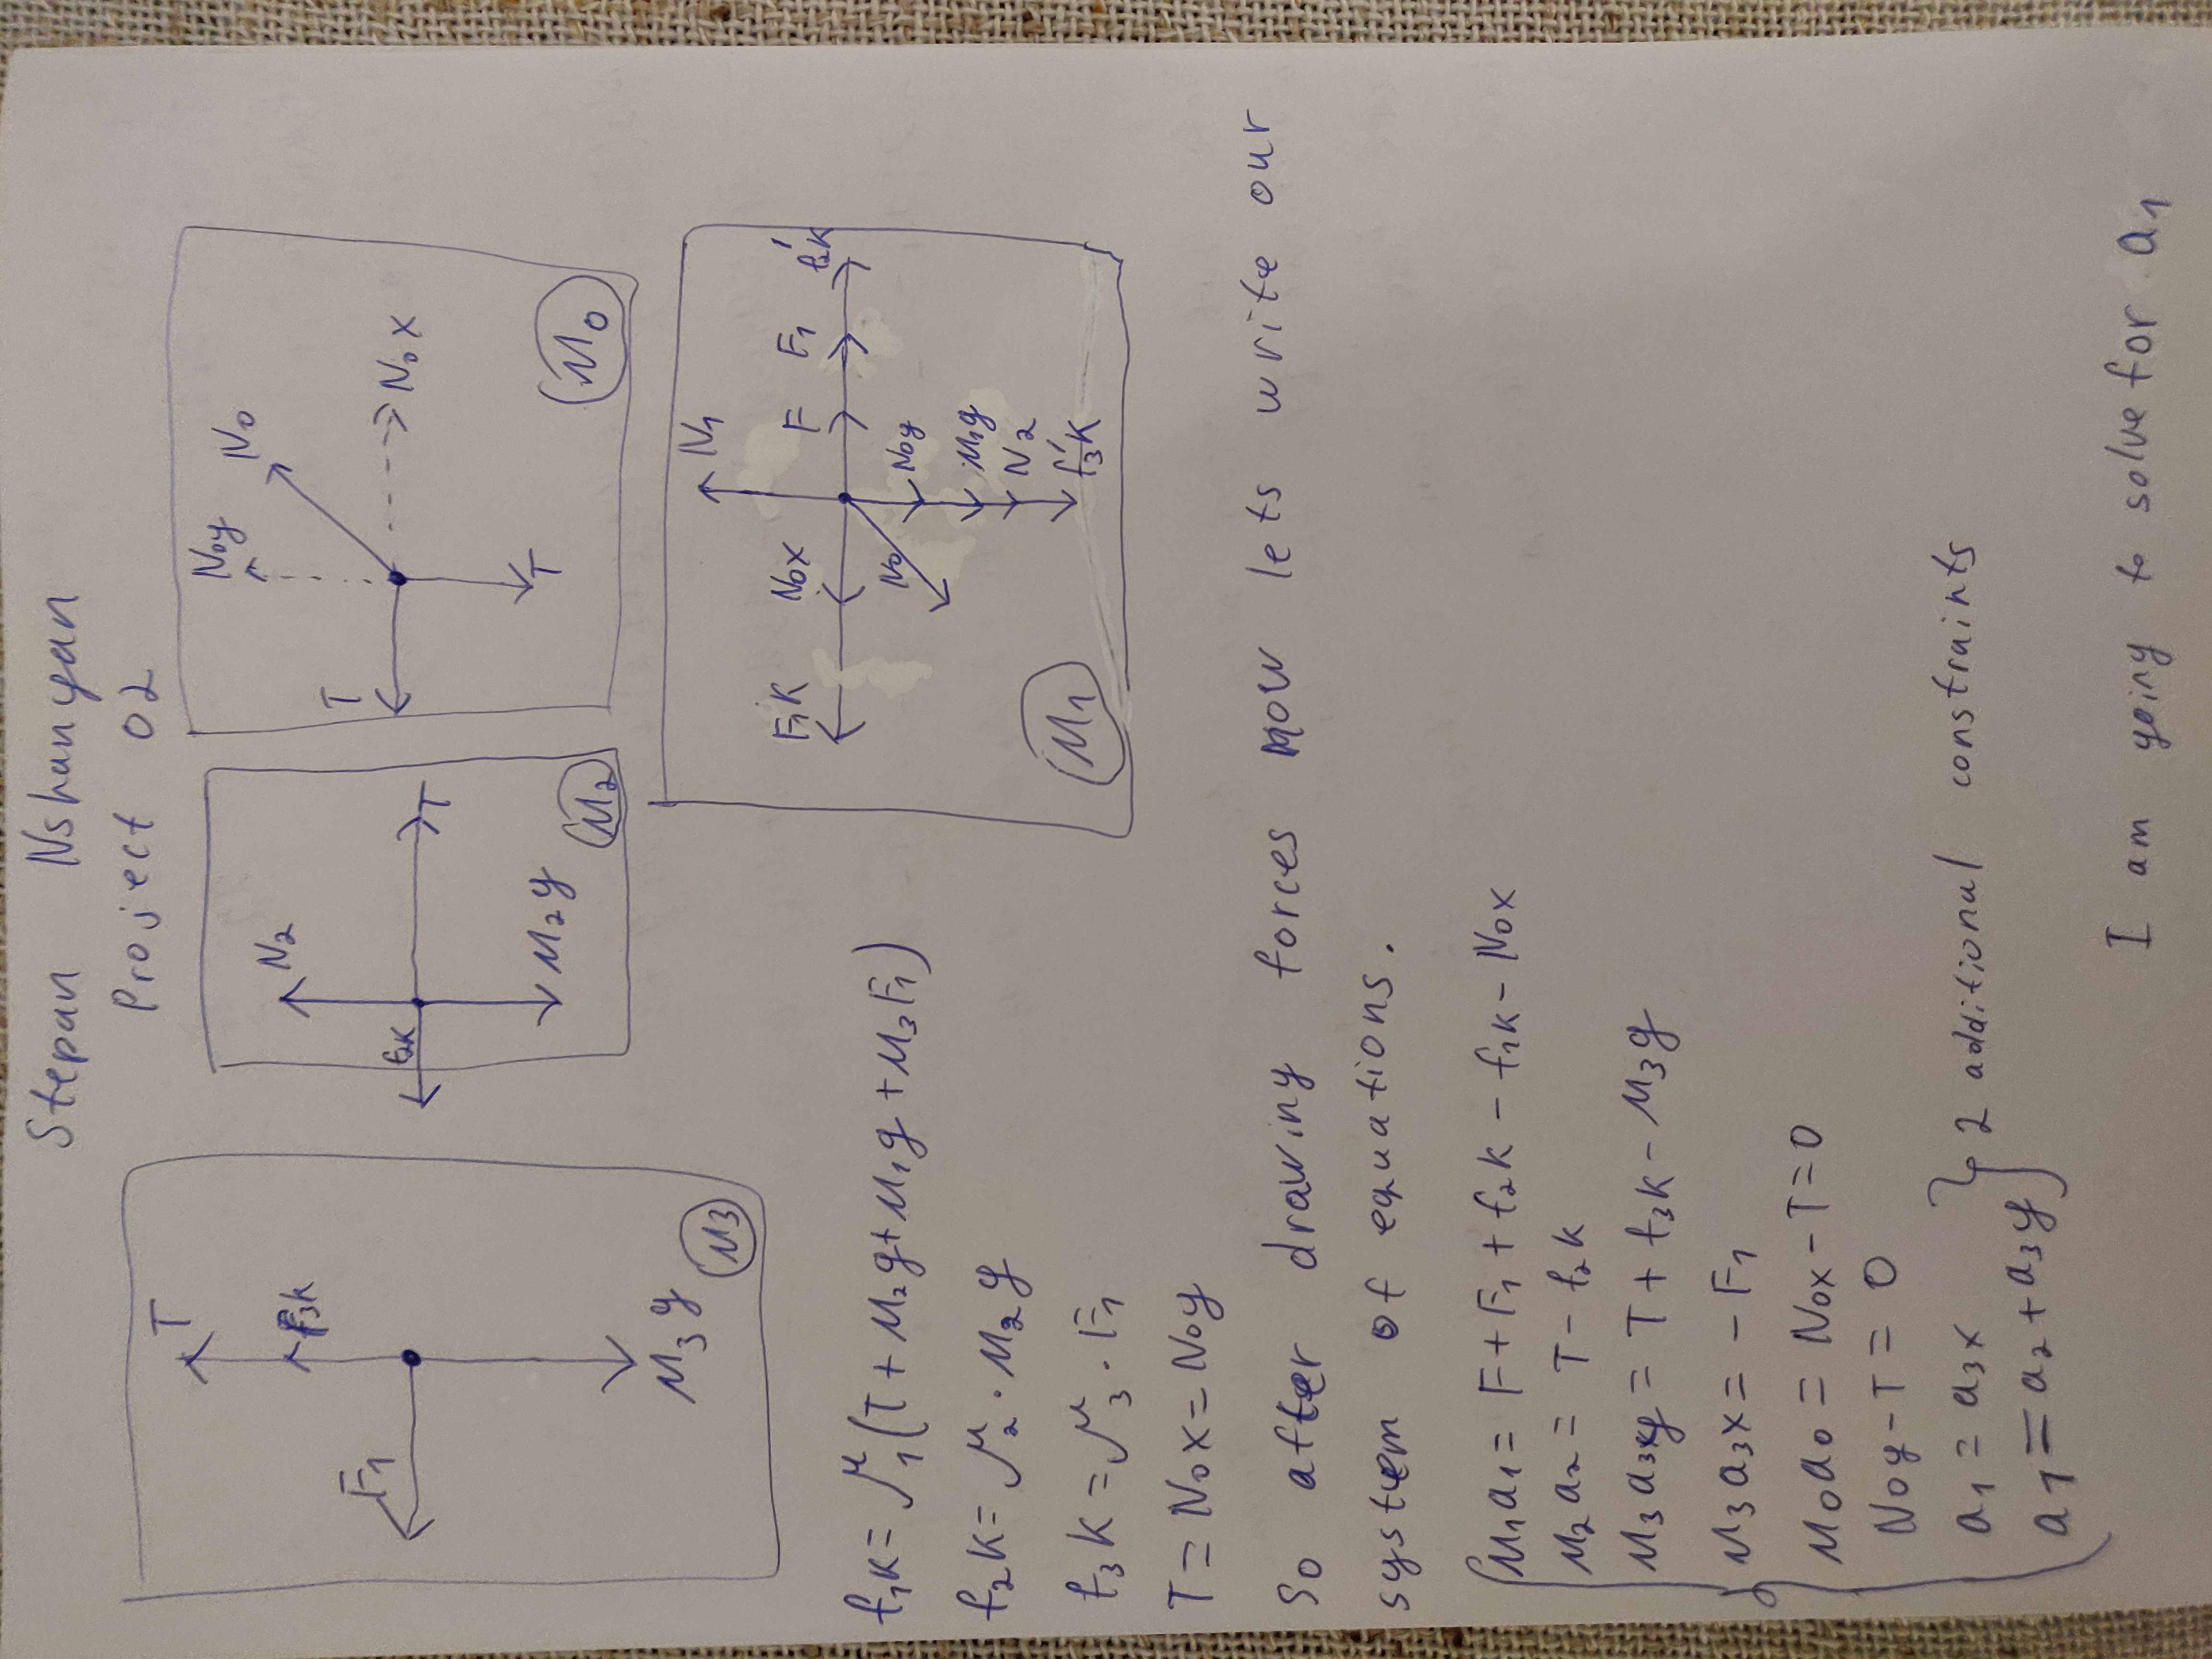 Stepan Nshanyan
Project 02
T
f3k
F1
M3g
M3
N2
f2k
T
M2g
M2
N0y
N0
T
N0x
T
M0
N1
F1k
N0x
F
F1
f2k'
N0
N0y
M1g
N2
f3'k
M1
f1k = μ1(T + M2g + M1g + M3F1)
f2k = μ2 · M2g
f3k = μ3 · F1
T = N0x = N0y
So after drawing forces now lets write our
system of equations.
M1a1 = F + F1 + f2k - f1k - N0x
M2a2 = T - f2k
M3a3y = T + f3k - M3g
M3a3x = - F1
M0a0 = N0x - T = 0
N0y - T = 0
a1 = a3x
a1 = a2 + a3y
} 2 additional constraints
I am going to solve for a1